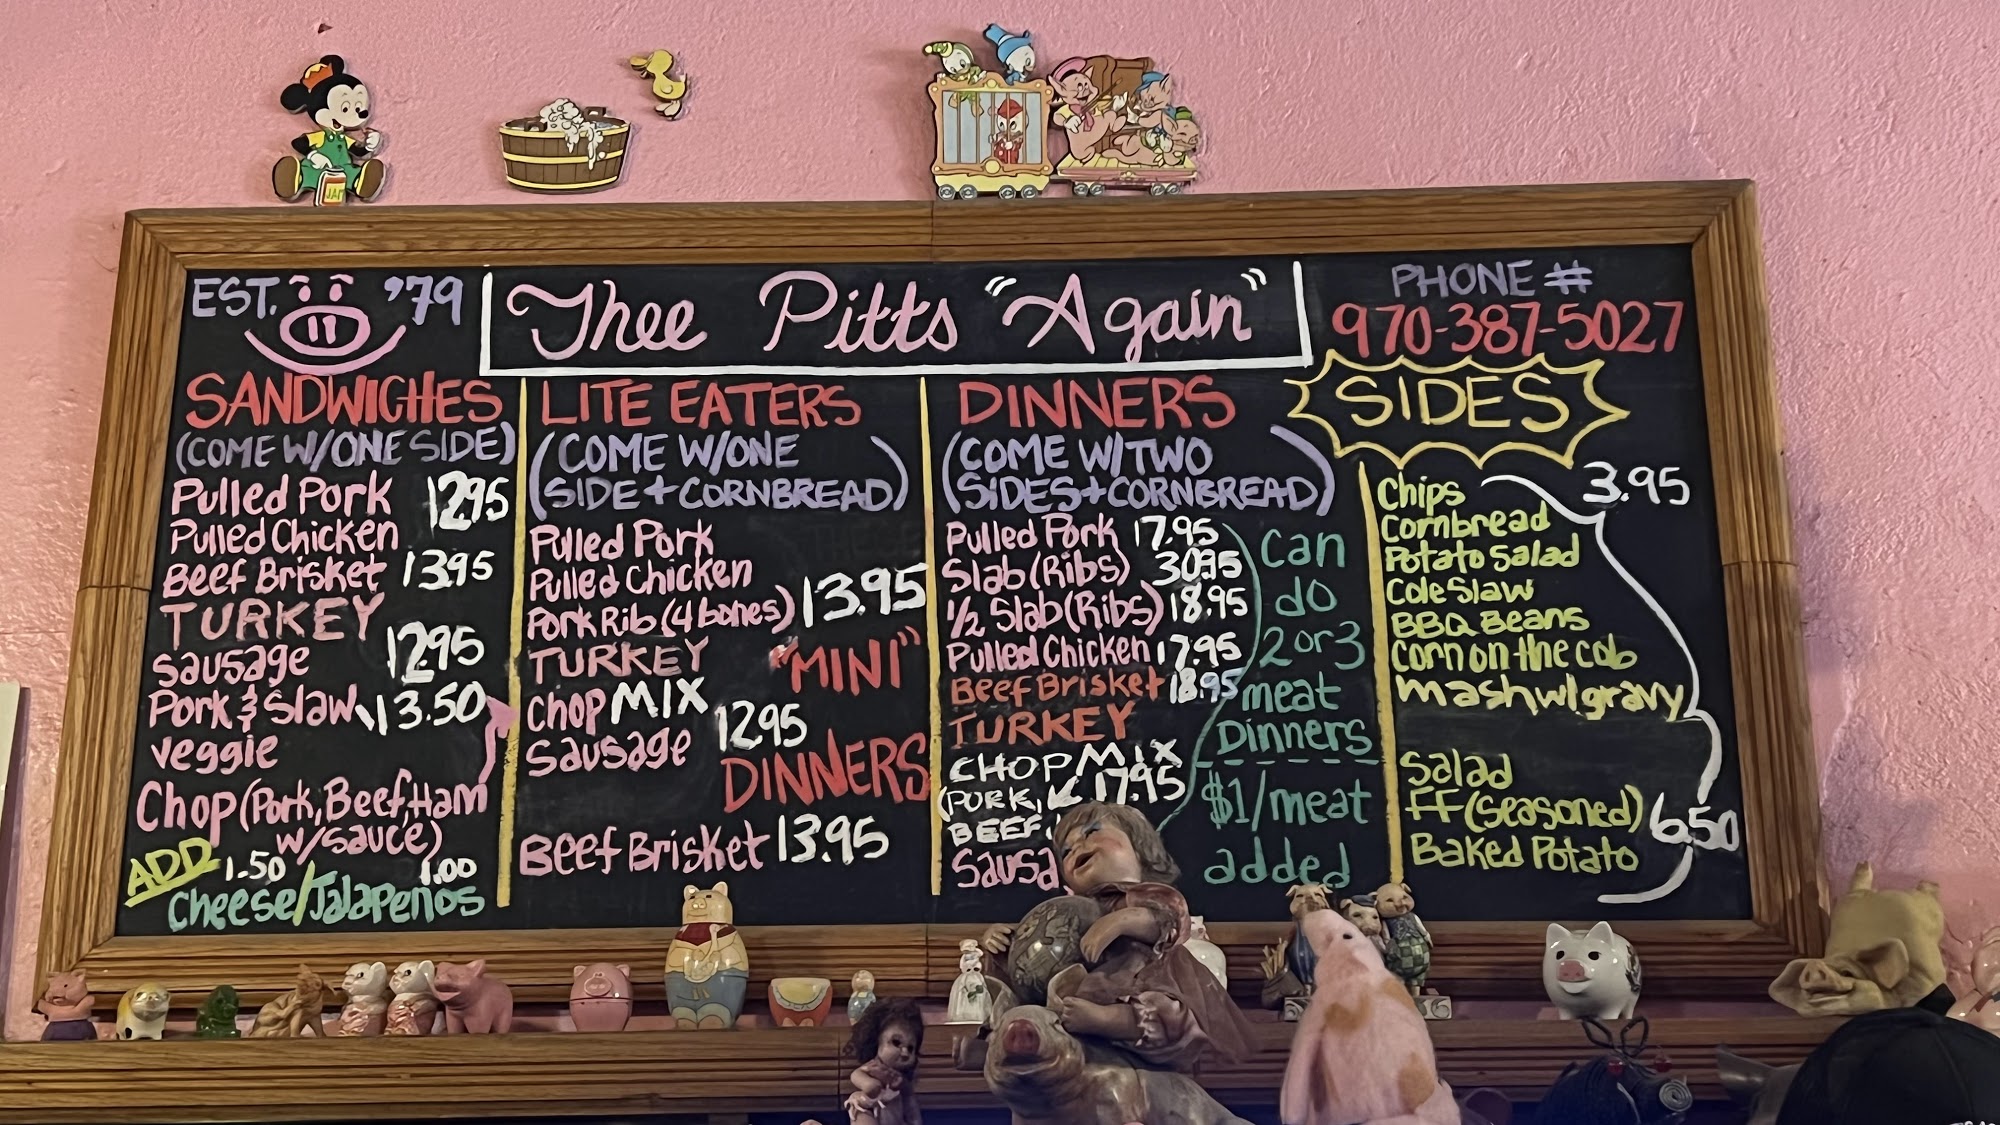 JAM
EST. '79
Thee Pitts "Again"
PHONE #
970-387-5027
SANDWICHES
(COME W/ONE SIDE)
Pulled Pork 12.95
Pulled Chicken
Beef Brisket 13.95
TURKEY
Sausage 12.95
Pork & Slaw 13.50
veggie
Chop (Pork, Beef, Ham
w/sauce)
ADD 1.50 1.00
Cheese/Jalapenos
LITE EATERS
(COME W/ONE
SIDE + CORNBREAD)
Pulled Pork
Pulled Chicken
Pork Rib (4 bones) 13.95
TURKEY "MINI"
Chop MIX
Sausage 12.95
DINNERS
Beef Brisket 13.95
DINNERS
(COME W/TWO
SIDES + CORNBREAD)
Pulled Pork 17.95
Slab (Ribs) 30.95
1/2 Slab (Ribs) 18.95
Pulled Chicken 17.95
Beef Brisket 18.95
TURKEY
CHOP MIX
(PORK, 17.95
BEEF,
Sausa
Can
do
2 or 3
meat
Dinners
$1/meat
added
SIDES
Chips 3.95
Cornbread
Potato Salad
Cole Slaw
BBQ Beans
Corn on the cob
Mash w/gravy
Salad
FF (Seasoned) 6.50
Baked Potato